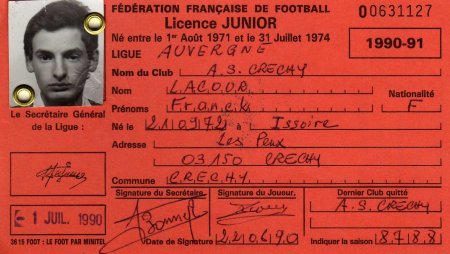 FÉDÉRATION FRANÇAISE DE FOOTBALL
00631127
Licence JUNIOR
Né entre le 1er Août 1971 et le 31 Juillet 1974
1990-91
LIGUE AUVERGNE
Nom du Club A.S. CRECHY
Nom LACOUR
Nationalité
Prénoms Franck F
Le Secrétaire Général
de la Ligue :
Né le 210972 à Issoire
Adresse Les
03150 CRECHY
Commune CRECHY
Signature du Secrétaire
Signature du Joueur
Dernier Club quitté
A.S. CRECHY
- 1 JUIL. 1990
3615 FOOT : LE FOOT PAR MINITEL
Date de Signature 220690
Indiquer la saison 8788